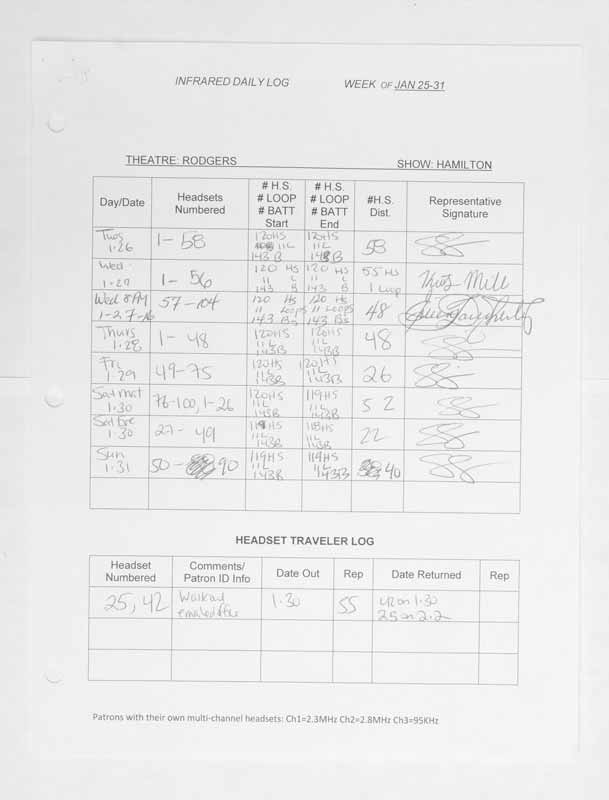 INFRARED DAILY LOG WEEK OF JAN 25-31
THEATRE: RODGERS SHOW: HAMILTON
Day/Date
Headsets
Numbered
# H.S.
# LOOP
# BATT
Start
# H.S.
# LOOP
# BATT
End
#H.S.
Dist.
Representative
Signature
Tues
1·26
1- 58
120HS
11L
143 B
120HS
11L
143B
58
Wed
1-27
1- 56
120 HS
11 L
143 B
120 HS
11 L
143 B
55 HS
1 Loop
Wed 8PM
1-27-16
57-104
120 HS
11 Loops
143 Bs
120 HS
11 Loops
143 Bs
48
Thurs
1·28
1- 48
120HS
11L
143B
120HS
11L
143B
48
Fri
1·29
49-75
120HS
11L
143B
120HS
11L
143B
26
Sat mat
1·30
76-100, 1-26
120HS
11L
143B
119HS
11L
143B
52
Sat Eve
1·30
27- 49
119HS
11L
143B
118HS
11L
143B
22
Sun
1·31
50- 90
119HS
11L
143B
119HS
11L
143B
40
HEADSET TRAVELER LOG
Headset
Numbered
Comments/
Patron ID Info
Date Out
Rep
Date Returned
Rep
25, 42
Walkout
emailed
1·30
SS
42 on 1·30
25 on 2·2
Patrons with their own multi-channel headsets: Ch1=2.3MHz Ch2=2.8MHz Ch3=95KHz